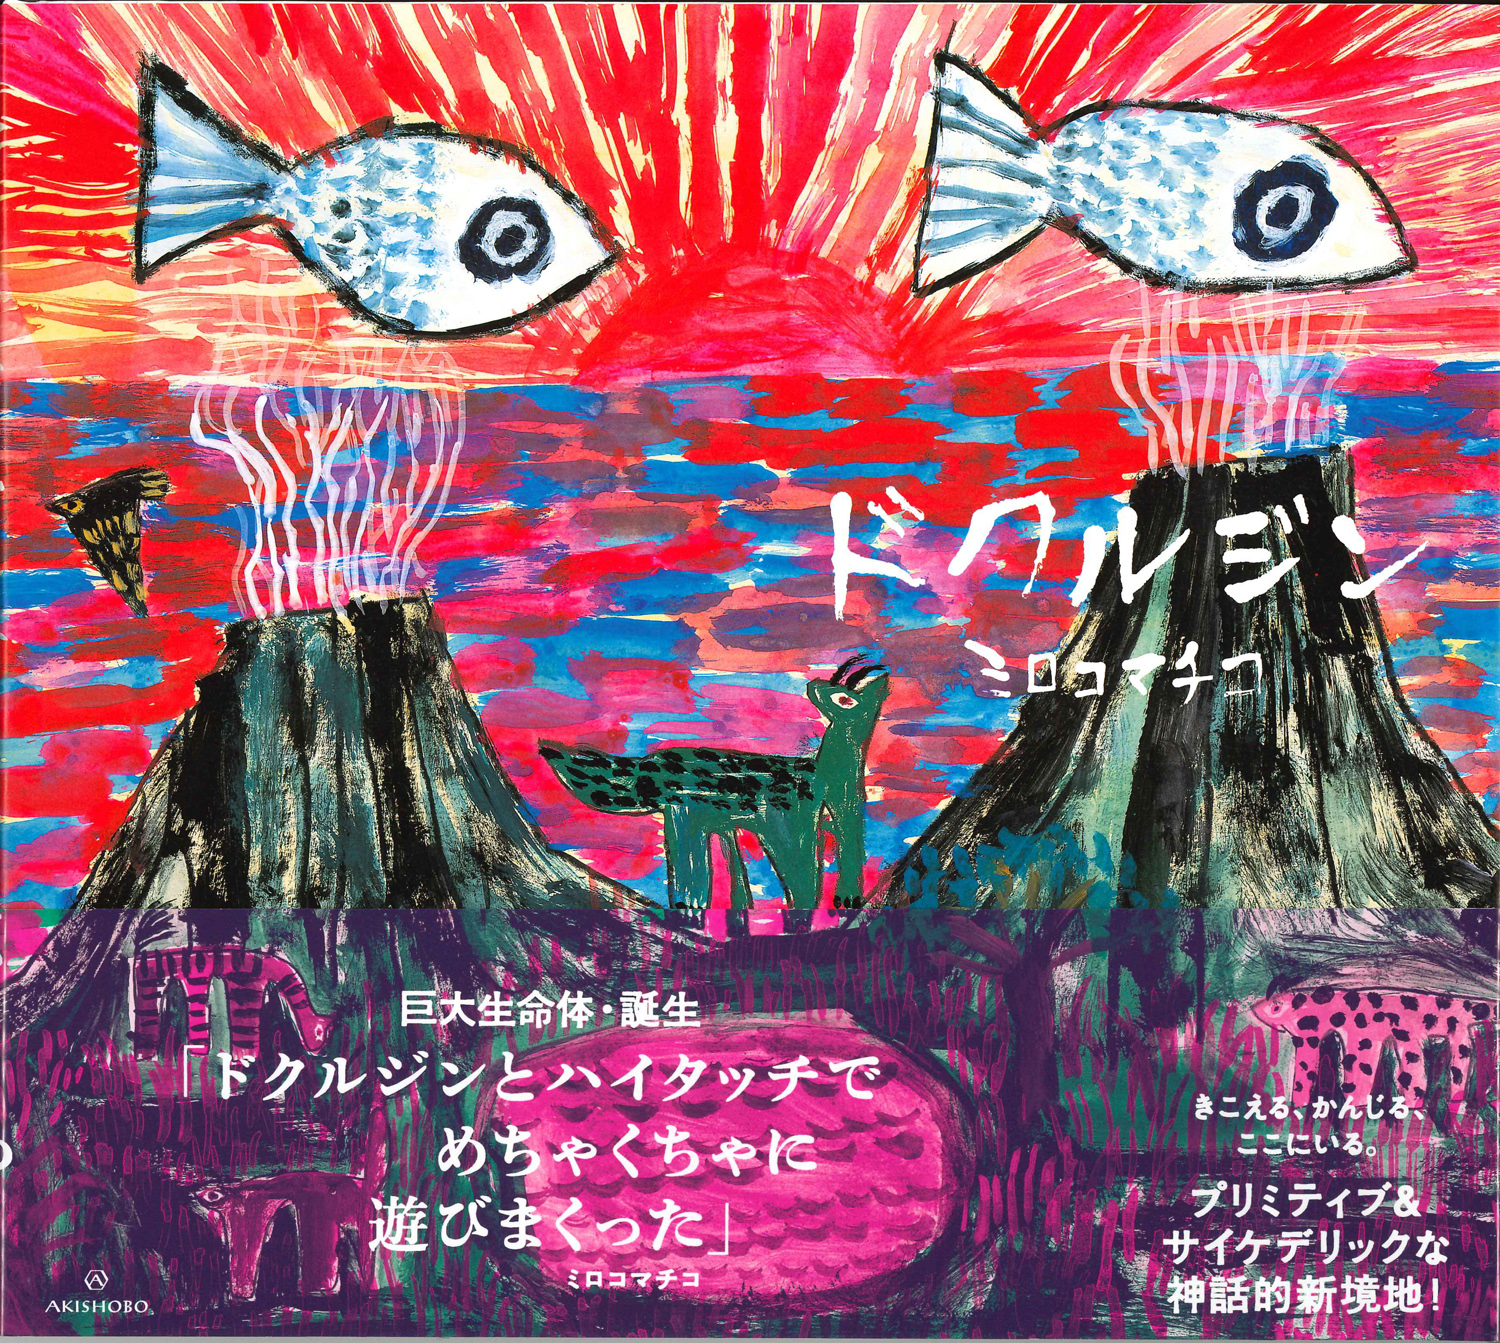 ドクルジン
ミロコマチコ
巨大生命体・誕生
「ドクルジンとハイタッチで
めちゃくちゃに
遊びまくった」
ミロコマチコ
きこえる、かんじる、
ここにいる。
プリミティブ&
サイケデリックな
神話的新境地!
AKISHOBO